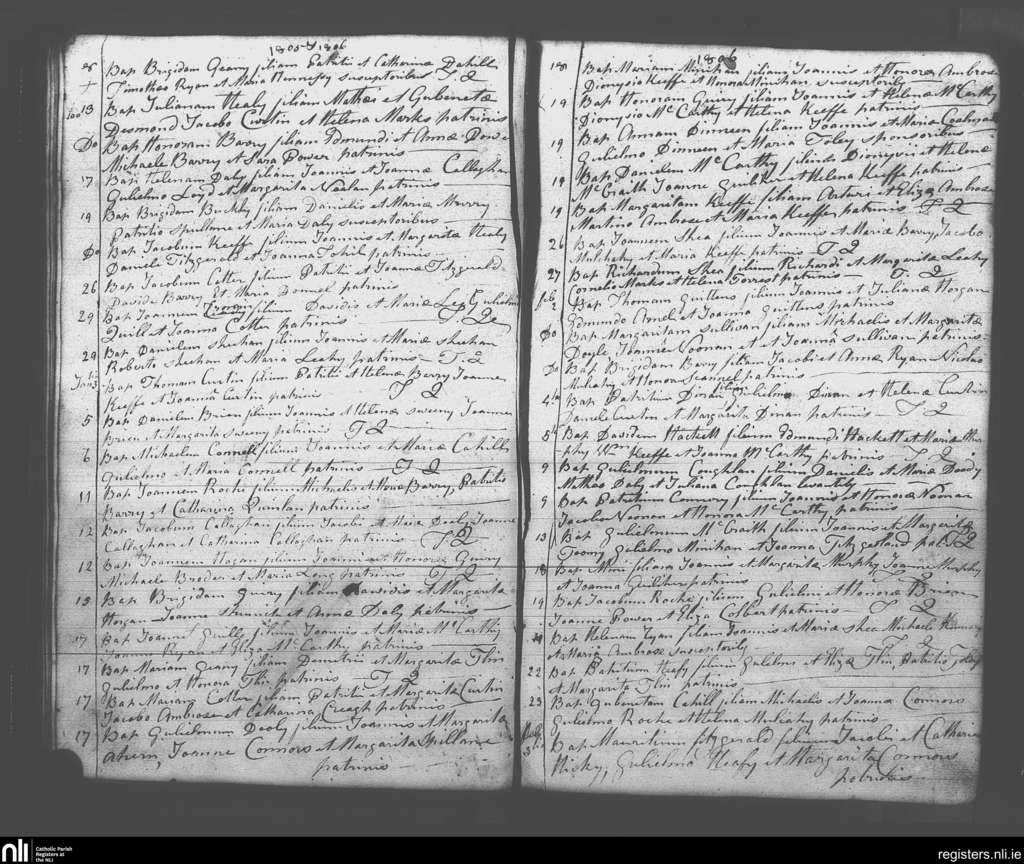 1805 & 1806
Bap Brigidam Geany filiam Patritii et Catherinæ Dahill
Timotheo Ryan et Maria Hennessy susceptoribus T Q
13 Bap Julianam Healy filiam Mathæi et Gubenetæ
Desmond Jacobo Curtin et Helena Marks patrinis
Do Bap Honoram Barry filiam Edmundi et Annæ Power
Michaele Barry et Sara Power patrinis
17 Bap Helenam Daly filiam Joannis et Joannæ Callaghan
Gulielmo Loyd et Margarita Nealan patrinis
19 Bap Brigidam Buckly filiam Danielis et Mariæ Murry
Patritio Spillane et Maria Daly susceptoribus
Do Bap Jacobum Keeff filium Joannis et Margaritæ Healy
Daniele Fitzgerald et Joanna Tohil patrinis
26 Bap Jacobum Cotter filium Patritii et Joannæ Fitzgerald
Davide Barry et Maria Donnel patrinis
29 Bap Joannem filium Davidis et Mariæ Lee Gulielmo
Quill et Joanna Cotter patrinis T Q
29 Bap Danielem Sheehan filium Joannis et Mariæ Sheehan
Roberto Sheehan et Maria Leahy patrinis T. Q
Jan 3 Bap Thomam Curtin filium Patritii et Helenæ Barry Joanne
Keeffe et Joanna Curtin patrinis T Q
5 Bap Danielem Brien filium Joannis et Helenæ Sweeny Joanne
Brien et Margarita Sweeny patrinis T Q
6 Bap Michaelem Connell filium Joannis et Mariæ Cahill
Gulielmo et Maria Connell patrinis T Q
11 Bap Joannem Roche filium Michaelis et Barry, Patritio
Barry et Catharina Quinlan patrinis
12 Bap Jacobum Callaghan filium Jacobi et Dooly Joanne
Callaghan et Catharina Callaghan patrinis T Q
12 Bap Joannem Hogan filium Joannis et Honoræ Guiry
Michaele Broder et Maria Long patrinis T Q
13 Bap Brigidam Guiry filiam Davidis et Margaritæ
Hogan Joanne et Anna Daly patrinis
17 Bap Joannem filium Joannis et Mariæ McCarthy
Joanne Ryan et Eliza McCarthy patrinis
17 Bap Mariam Geany filiam Demetrii et Margaritæ Flin
Gulielmo et Honora Flin patrinis T Q
17 Bap Mariam Cotter filiam Patritii et Margaritæ Curtin
Jacobo Ambrose et Catharina Creagh patrinis
17 Bap Gulielmum Dooly filium Joannis et Margaritæ
Ahern, Joanne Connors et Margarita Spillane
patrinis
1806
18 Bap Mariam Minihan filiam Joannis et Honoræ Ambrose
Dionysio Keeffe et Honora Minihan susceptoribus
19 Bap Honoram Guiry filiam Joannis et Helenæ McCarthy
Dionysio McCarthy et Helena Keeffe patrinis
19 Bap Annam Dinneen filiam Joannis et Mariæ
Gulielmo Dinneen et Maria Foley sponsoribus
19 Bap Danielem McCarthy filium Dionysii et Helenæ
McGraith Joanne et Helena Keeffe patrinis
19 Bap Margaritam Keeffe filiam Arturi et Elizæ Ambrose
Martino Ambrose et Maria Keeffe patrinis T Q
26 Bap Joannem Shea filium Joannis et Mariæ Barry, Jacobo
Mulcahy et Maria Keeffe patrinis T Q
27 Bap Richardum Shea filium Richardi et Margaritæ Leahy
Cornelio Marks et Helena Forrest patrinis T. Q
Feb 2 Bap Thomam Quillens filium Joannis et Julianæ Horgan
Edmundo et Joanna Quillens patrinis
Do Bap Margaritam Sullivan filiam Michaelis et Margaritæ
Doyle Joanne Noonan et Joanna Sullivan patrinis
Do Bap Brigidam Barry filiam Jacobi et Annæ Ryan Nicolao
Mulcahy et Honora Scannel patrinis
4 Bap Patritium Dinan filium Gulielmi Dinan et Helenæ Curtin
Daniele Curtin et Margarita Dinan patrinis T Q
5 Bap Davidem Hackett filium Edmundi Hackett et Mariæ Murphy
Wm Keeffe et Joanna McCarthy patrinis T Q
9 Bap Gulielmum Coughlan filium Danielis et Mariæ Doody
Mathæo Daly et Juliana Coughlan
9 Bap Patritium Connery filium Joannis et Honoræ Noonan
Jacobo Noonan et Honora McCarthy patrinis
13 Bap Gulielmum McGraith filium Joannis et Margaritæ
Toomy Gulielmo Minihan et Joanna Fitzgerald pat T Q
18 Bap filiam Joannis et Margaritæ Murphy Joanne Murphy
et Joanna patrinis
19 Bap Jacobum Roche filium Gulielmi et Honoræ Brien
Joanne Power et Eliza Colbert patrinis T Q
Bap Helenam Ryan filiam Joannis et Mariæ Shea Michaele
et Maria Ambrose susceptoribus T Q
22 Bap Patritium Keeff filium Gulielmi et Elizæ Flin, Patritio Foley
et Margarita Flin patrinis
23 Bap Gubenetam Cahill filiam Michaelis et Joannæ Connors
Gulielmo Roche et Helena Mulcahy patrinis
3 Bap Mauritium Fitzgerald filium Jacobi et Catharinæ
Hicky, Gulielmo Heafy et Margarita Connors
patrinis
nli
Catholic Parish
Registers at
the NLI
registers.nli.ie